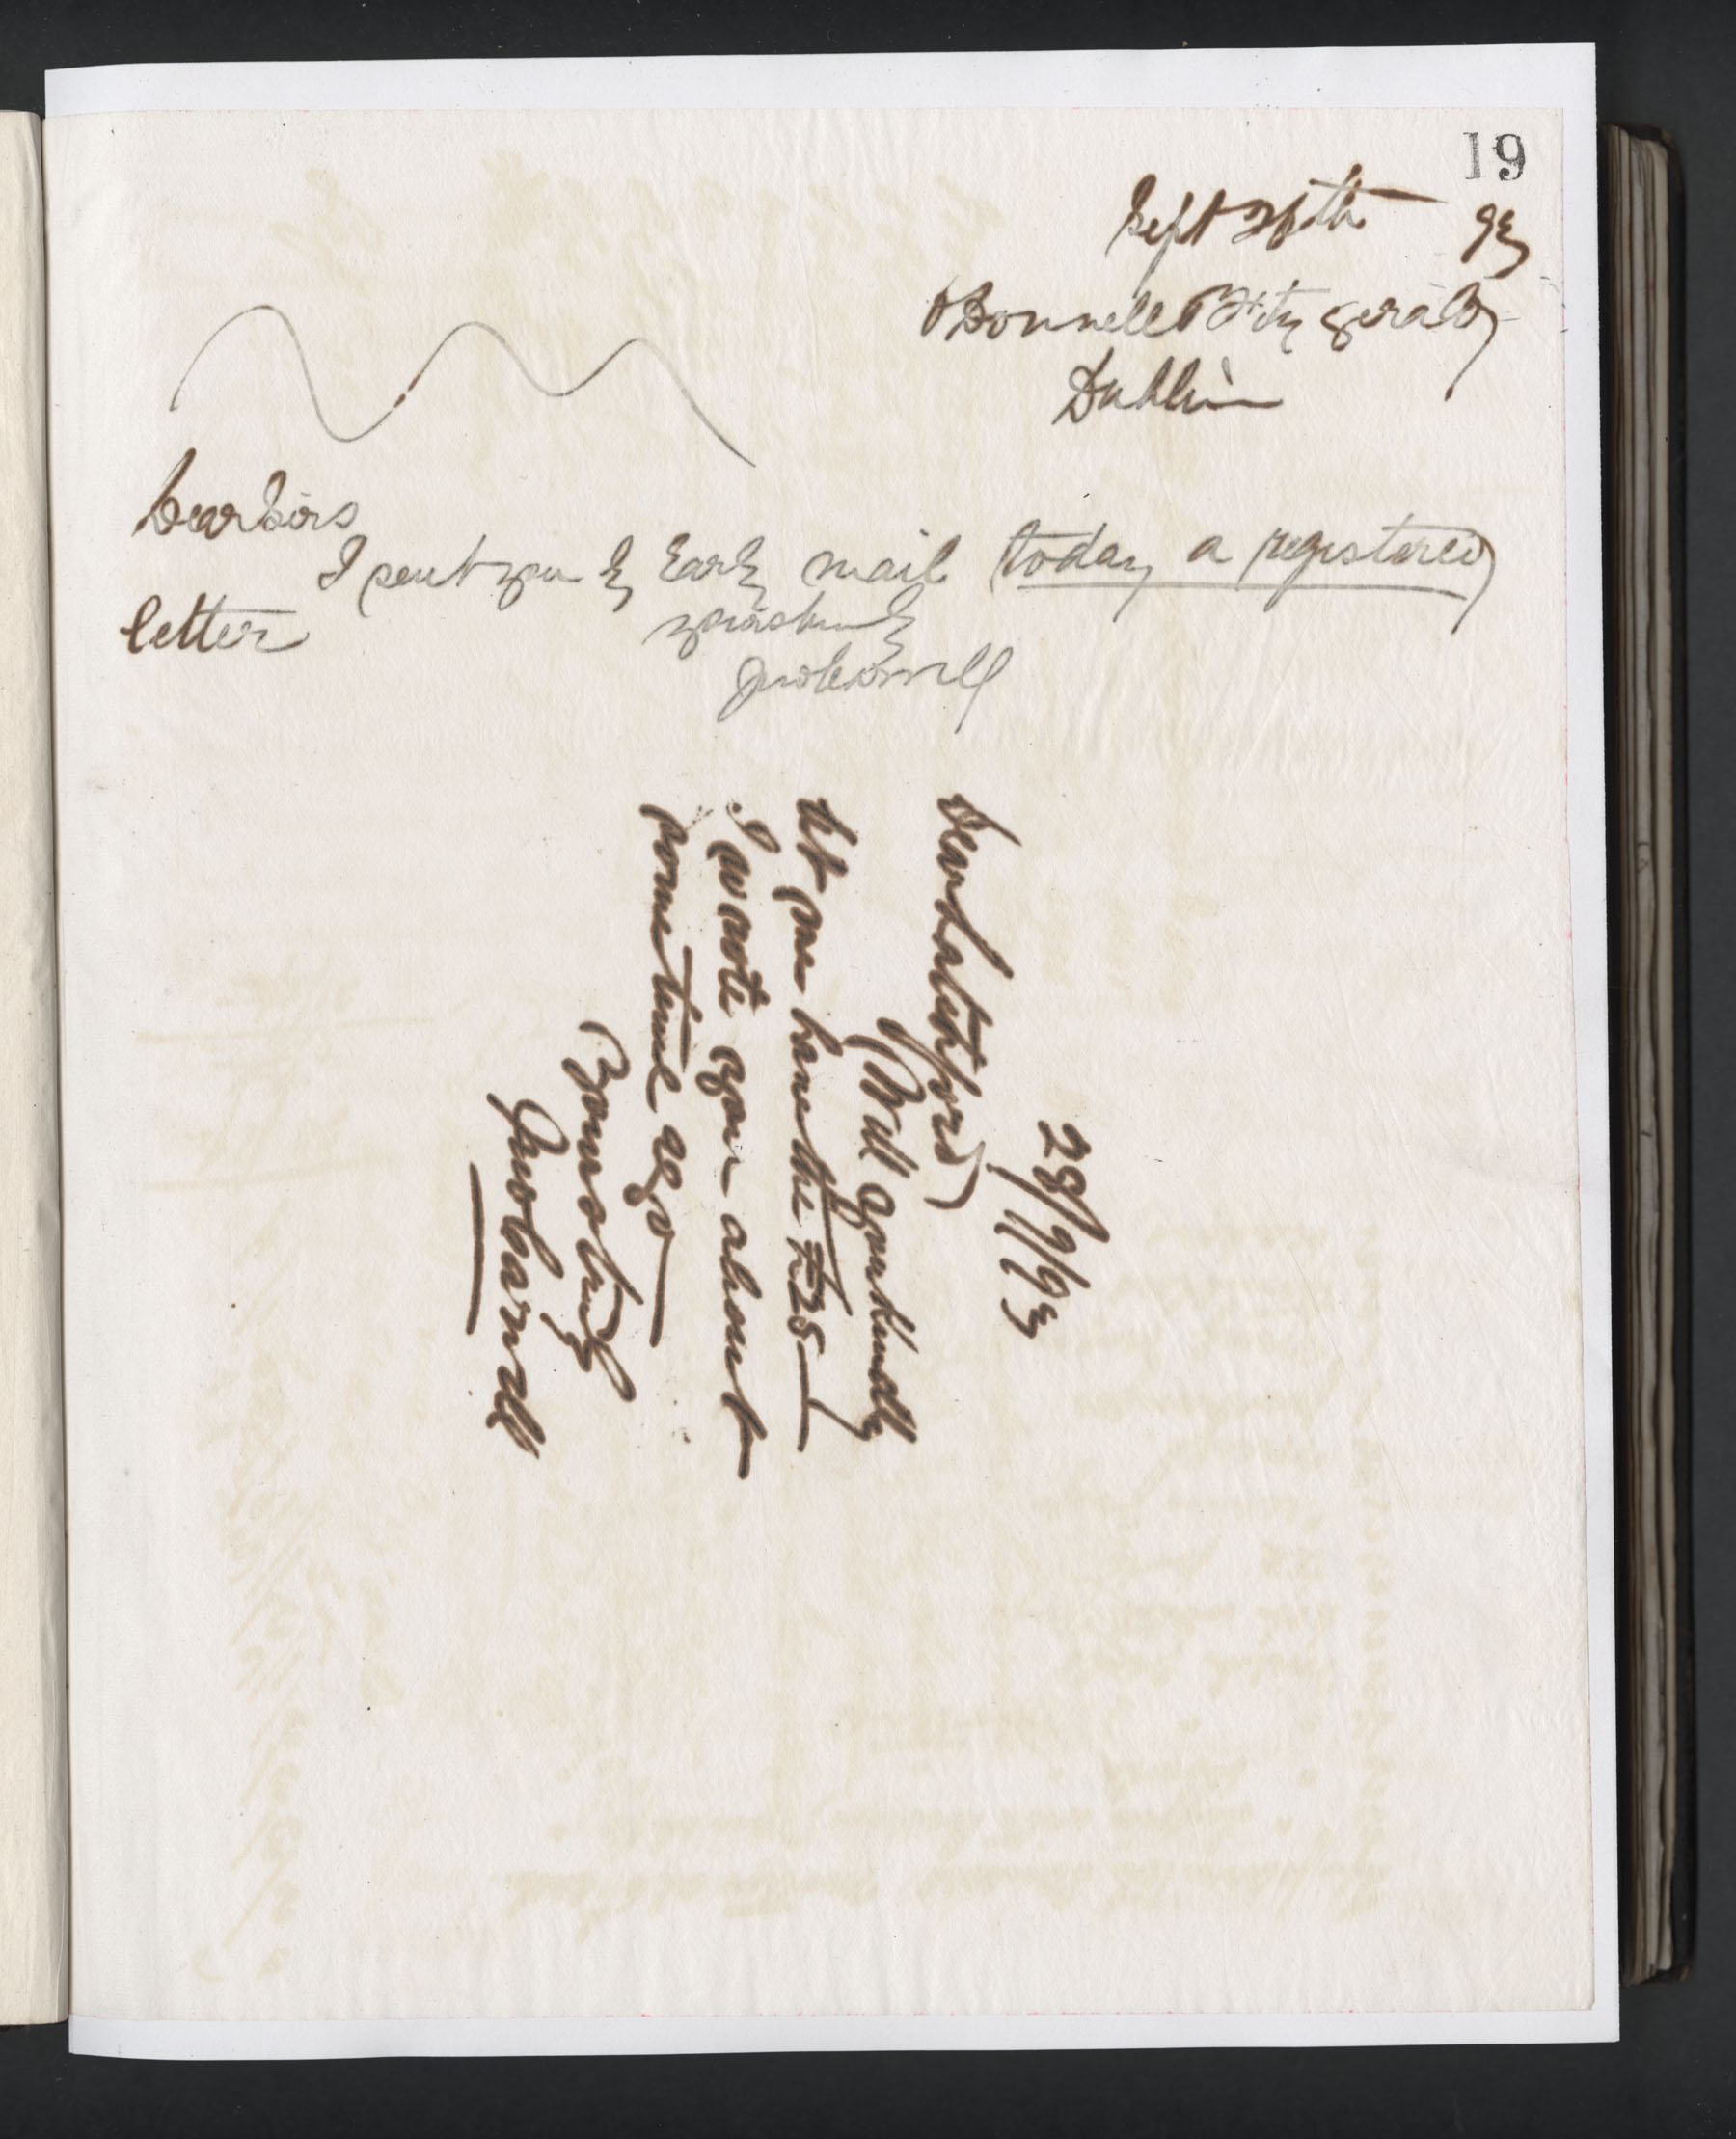 19
Sept 26th 93
O'Donnell & Fitzgerald
Dublin
Dear Sirs
I sent you by Early mail today a registered
letter
yours truly
Jno Carroll
28/9/93
Dear Latchford
Will you kindly
let me have the £25
I wrote you about
some time ago
Yours truly
Jno Carroll